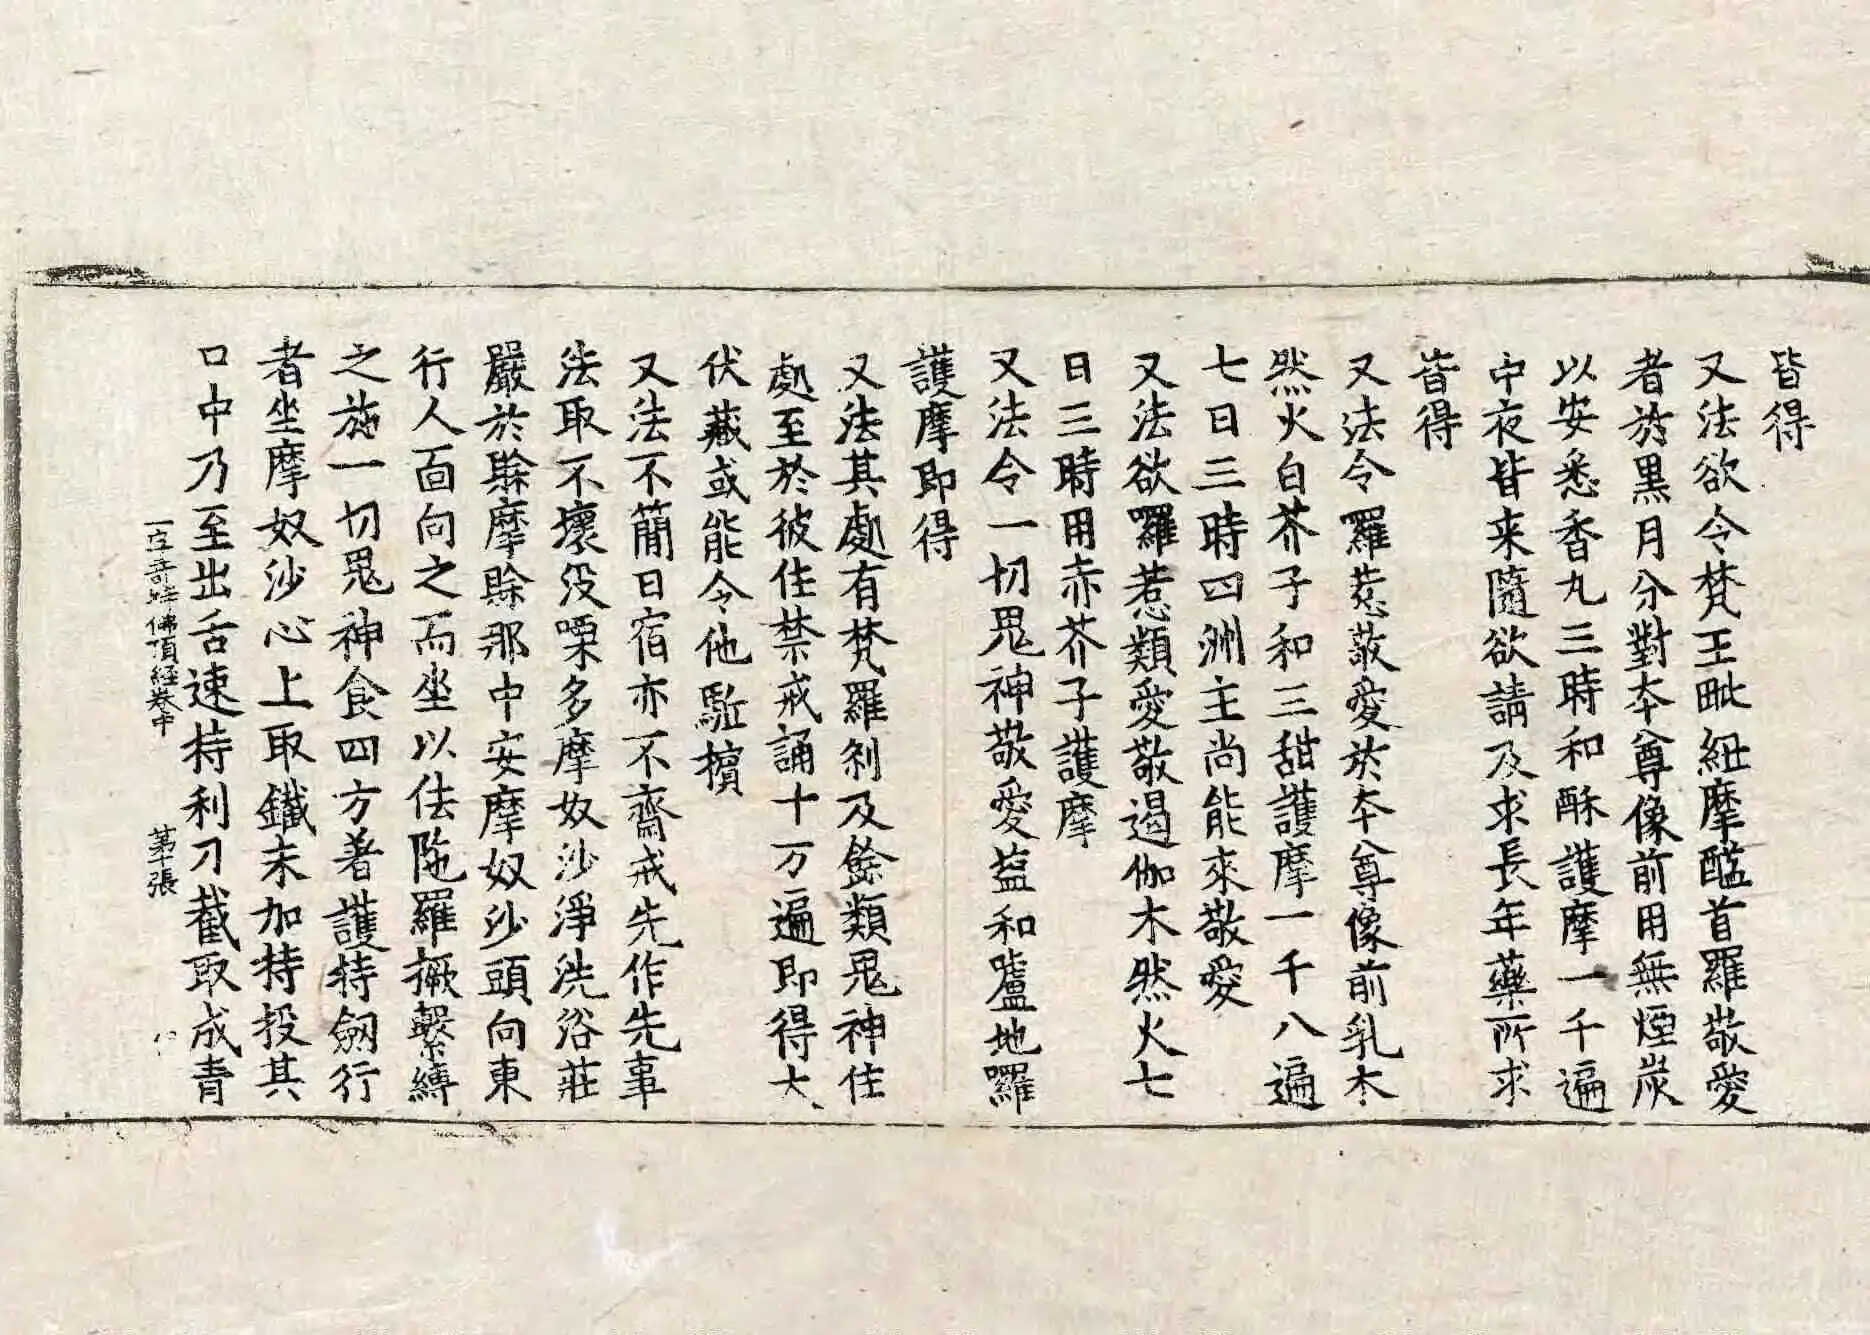 皆得
又法欲令梵王毗紐摩醯首羅敬愛
者於黑月分對本尊像前用無煙炭
以安悉香丸三時和酥護摩一千遍
中夜皆来隨欲請及求長年藥所求
皆得
又法令羅惹敬愛於本尊像前乳木
然火白芥子和三甜護摩一千八遍
七日三時四洲主尚能來敬愛
又法欲囉惹類愛敬遏伽木然火七
日三時用赤芥子護摩
又法令一切鬼神敬愛益和嚧地囉
護摩即得
又法其處有梵羅刹及餘類鬼神住
處至於彼住禁戒誦十万遍即得大
伏藏或能令他駈擯
又法不簡日宿亦不齋戒先作先事
法取不壞没㗚多摩奴沙淨洗浴莊
嚴於賒摩賒那中安摩奴沙頭向東
行人面向之而坐以佉陁羅橛繫縛
之施一切鬼神食四方著護持劔行
者坐摩奴沙心上取鐵末加持投其
口中乃至出舌速持利刀截取成青
一字奇特佛頂経卷中 第十張